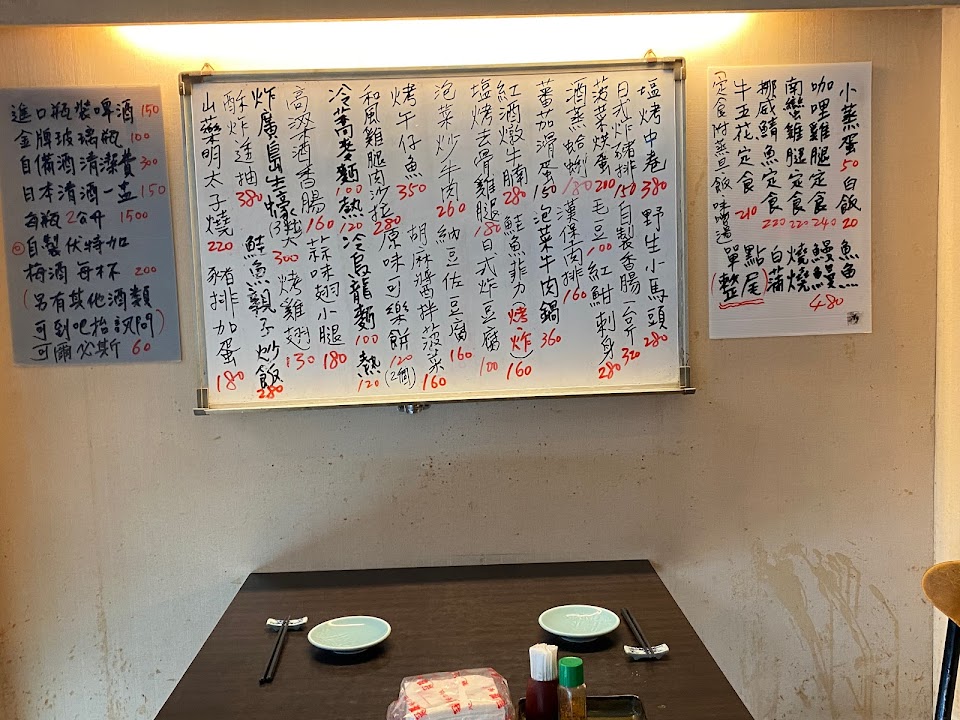 進口瓶裝啤酒 150
金牌玻璃瓶 100
自備酒清潔費 300
日本清酒一壶 150
每瓶2合升 1500
◎自製伏特加
梅酒每杯 200
(另有其他酒類
可到吧抬訊問)
可爾必斯 60
塩烤中卷 380 野生小馬頭 280
日式炸豬排 150 自製香腸一台斤 320
菠菜烘蛋 200 毛豆 100 紅魽刺身 280
酒蒸蛤蜊 180 漢堡肉排 160
蕃茄滑蛋 150 泡菜牛肉鍋 360
紅酒燉牛腩 280 鮭魚菲力(烤炸) 160
塩烤去骨雞腿 180 日式炸豆腐 100
泡菜炒牛肉 260 納豆佐豆腐 160
烤午仔魚 350 胡麻醬拌菠菜 160
和風雞腿肉沙拉 280 原味可樂餅 120 (2個)
冷蕎麥麵 100 熱 120 冷烏龍麵 100 熱 120
高粱酒香腸 160 蒜味翅小腿 180
炸廣島生蠔(3顆) 300 烤雞翅 130
酥炸透抽 380 鮭魚親子炒飯 280
山藥明太子燒 220 豬排加蛋 180
小蒸蛋 50 白飯 20
咖哩雞腿定食 240
南蠻雞腿定食 220
挪威鯖魚定食 220
牛五花定食 210
(定食附蒸旦、飯、味噌湯)
白燒鰻魚
單點 蒲燒鰻魚
(整尾) 480